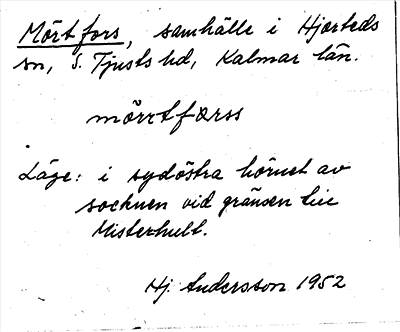 Mörtfors, samhälle i Hjorteds
sn, S. Tjusts hd, Kalmar län.
mörrtfårss
Läge: i sydöstra hörnet av
socknen vid gränsen till
Misterhult.
Hj. Andersson 1952